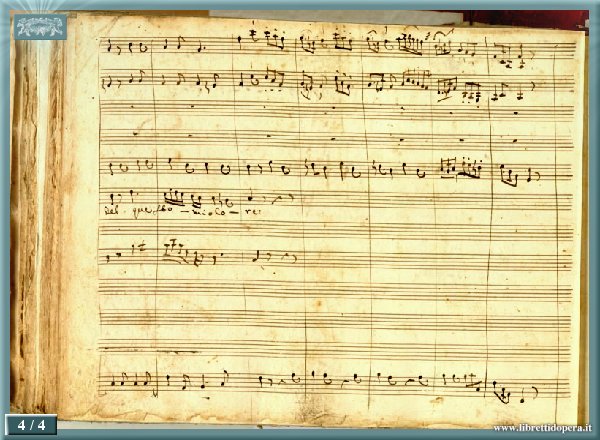 del questo mio co - re:
4 / 4
www.librettidopera.it